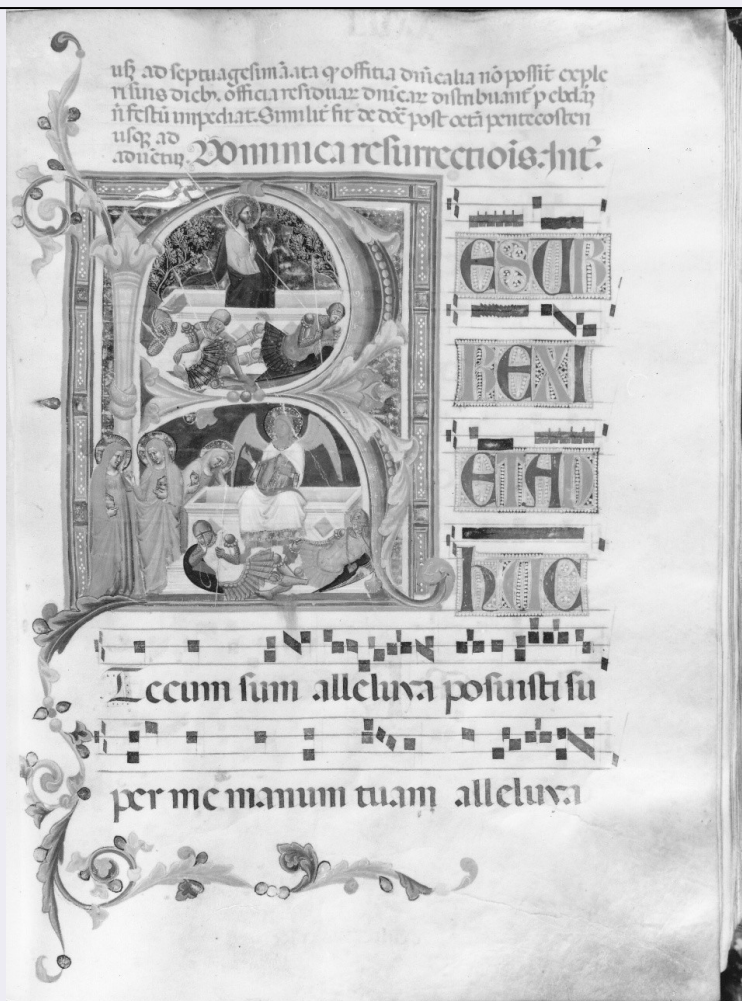 usq ad septuagesimā. ita q offitia dn̄icalia nō possīt exple
ri suis dieb. officia residua dn̄icar distribuant p ebd
n̄ festū impediat. Similit fit de post octā pentecosten
usq ad
aduentū. Dominica resurrectiois. Int.
RESUR
REXI
ET AD
HUC
Tecum sum alleluya posuisti su
per me manum tuam alleluya